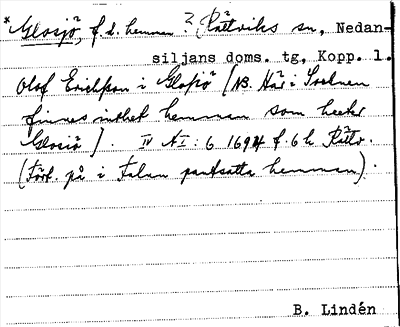 *Glosjö, f.d. hemman? Rättviks sn, Nedan-
siljans doms. tg, Kopp. l.
Olof Erichson i Glosiö [NB. Här i Socknen
finnes inthet hemman som heeter
Glosiö]. IV A I: 6 1694 f. 6 h Rättv.
(Fört. på i Falun pantsatta hemman).
B. Lindén